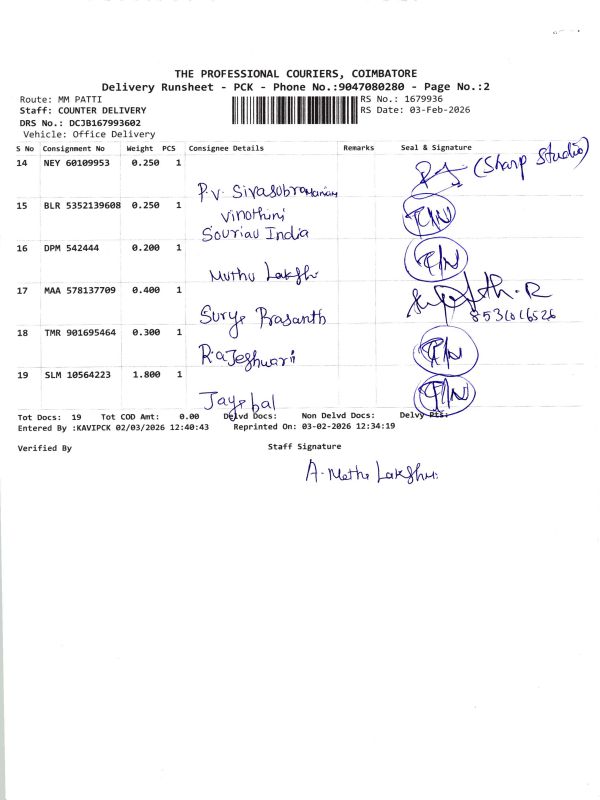 THE PROFESSIONAL COURIERS, COIMBATORE
Delivery Runsheet - PCK - Phone No.:9047080280 - Page No.:2
Route: MM PATTI
RS No.: 1679936
Staff: COUNTER DELIVERY
RS Date: 03-Feb-2026
DRS No.: DCJB167993602
Vehicle: Office Delivery
S No Consignment No Weight PCS Consignee Details Remarks Seal & Signature
14 NEY 60109953 0.250 1 (Sharp Studio)
P.V. Sivasubramaniam
15 BLR 5352139608 0.250 1
Vinothini
Souriau India
16 DPM 542444 0.200 1
Muthu Lakshi
17 MAA 578137709 0.400 1
Surya Prasanth
8531016526
18 TMR 901695464 0.300 1
Rajeshwari
19 SLM 10564223 1.800 1
Tot Docs: 19 Tot COD Amt: 0.00 Delvd Docs: Non Delvd Docs: Delvy Pts:
Entered By :KAVIPCK 02/03/2026 12:40:43 Reprinted On: 03-02-2026 12:34:19
Verified By Staff Signature